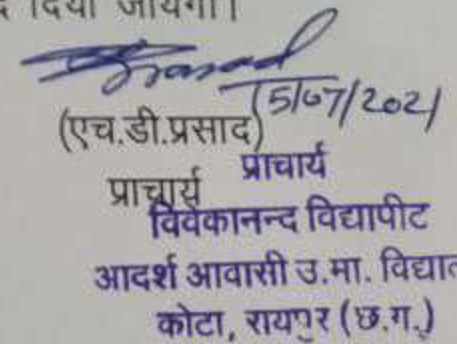 दिया जायेगा।
Prasad
15/07/2021
(एच.डी.प्रसाद)
प्राचार्य प्राचार्य
विवेकानन्द विद्यापीट
आदर्श आवासी उ.मा.
कोटा, रायपुर (छ.ग.)